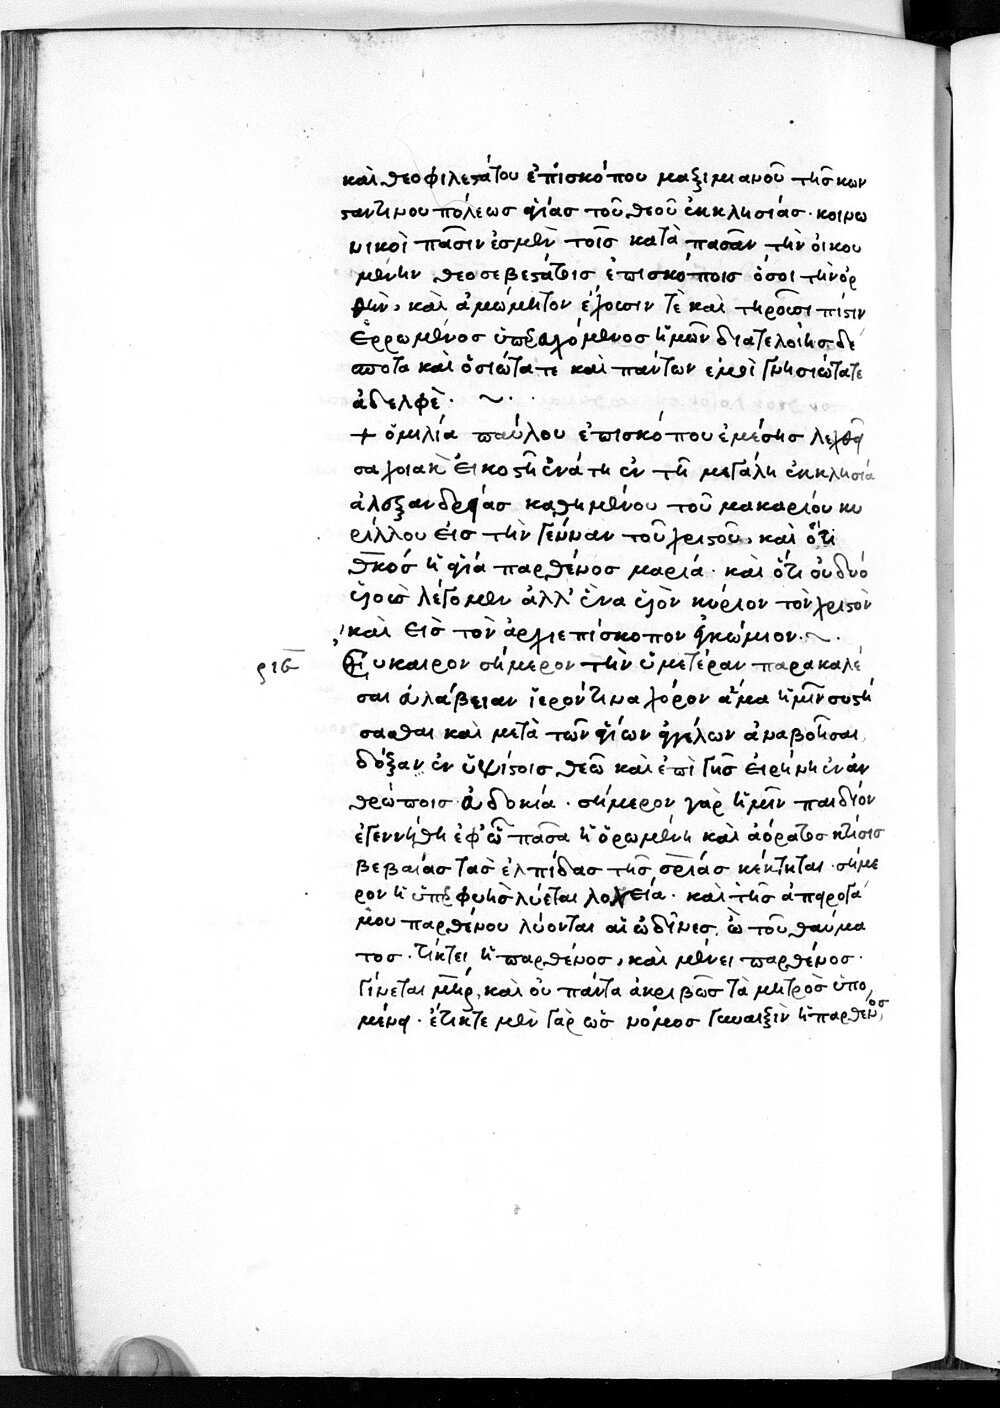 καὶ θεοφιλεστάτου ἐπισκόπου μαξιμιανοῦ τῆς κων
σαντινουπόλεως ἁγίας τοῦ θεοῦ ἐκκλησίας· κοινω
νικοὶ πᾶσιν ἐσμὲν τοῖς κατὰ πᾶσαν τὴν οἰκου
μένην θεοσεβεστάτοις ἐπισκόποις ὅσοι τὴν ὀρ
θὴν, καὶ ἀμώμητον ἔχουσιν τὲ καὶ τηροῦσι πίστιν
ἐρρωμένος ὑπερευχόμενος ἡμῶν διατελοίης δέ
σποτα καὶ ὁσιώτατε καὶ πάντων ἐμοὶ γνησιώτατε
ἀδελφὲ· ~ ·
+ ὁμιλία παύλου ἐπισκόπου ἐμέσης λεχθεῖ
σα χοιὰκ εἰκοστῇ ἐνάτῃ ἐν τῇ μεγάλῃ ἐκκλησία
ἀλεξανδρείας καθημένου τοῦ μακαρίου κυ
ρίλλου εἰς τὴν γένναν τοῦ χριστοῦ, καὶ ὅτι
θκός ἡ ἁγία παρθένος μαρία· καὶ ὅτι οὐ δυό
υἱοὺς λέγομεν ἀλλ' ἕνα υἱὸν κύριον τὸν χριστὸν
καὶ εἰς τὸν ἀρχιεπίσκοπον ἐγκώμιον· ~ ·
ριϛ Εὔκαιρον σήμερον τὴν ὑμετέραν παρακαλέ
σαι εὐλάβειαν ἱερόν τινα χόρον ἅμα ἡμῖν συστή
σασθαι καὶ μετὰ τῶν ἁγίων ἀγγέλων ἀναβοῆσαι
δόξαν ἐν ὑψίστοις θεῶ καὶ ἐπὶ γῆς εἰρήνη ἐν ἀν
θρώποις εὐδοκία· σήμερον γὰρ ἡμῖν παιδίον
ἐγεννήθη ἐφ' ὧ πᾶσα ἡ ὁρωμένη καὶ ἀόρατος κτίσις
βεβαίας τὰς ἐλπίδας τῆς σρίας κέκτηται· σήμε
ρον ἡ ὑπερφυὴς λύεται λοχεία· καὶ τῆς ἀπειρογά
μου παρθένου λύονται αἱ ὠδῖνες. ὢ τοῦ θαύμα
τος· τίκτει ἡ παρθένος, καὶ μένει παρθένος·
γίνεται μηρ, καὶ οὐ πάντα ἀκριβῶς τὰ μητρὸς ὑπο
μένει· ἔτικτε μὲν γὰρ ὡς νόμος γυναιξὶν ἡ παρθένος